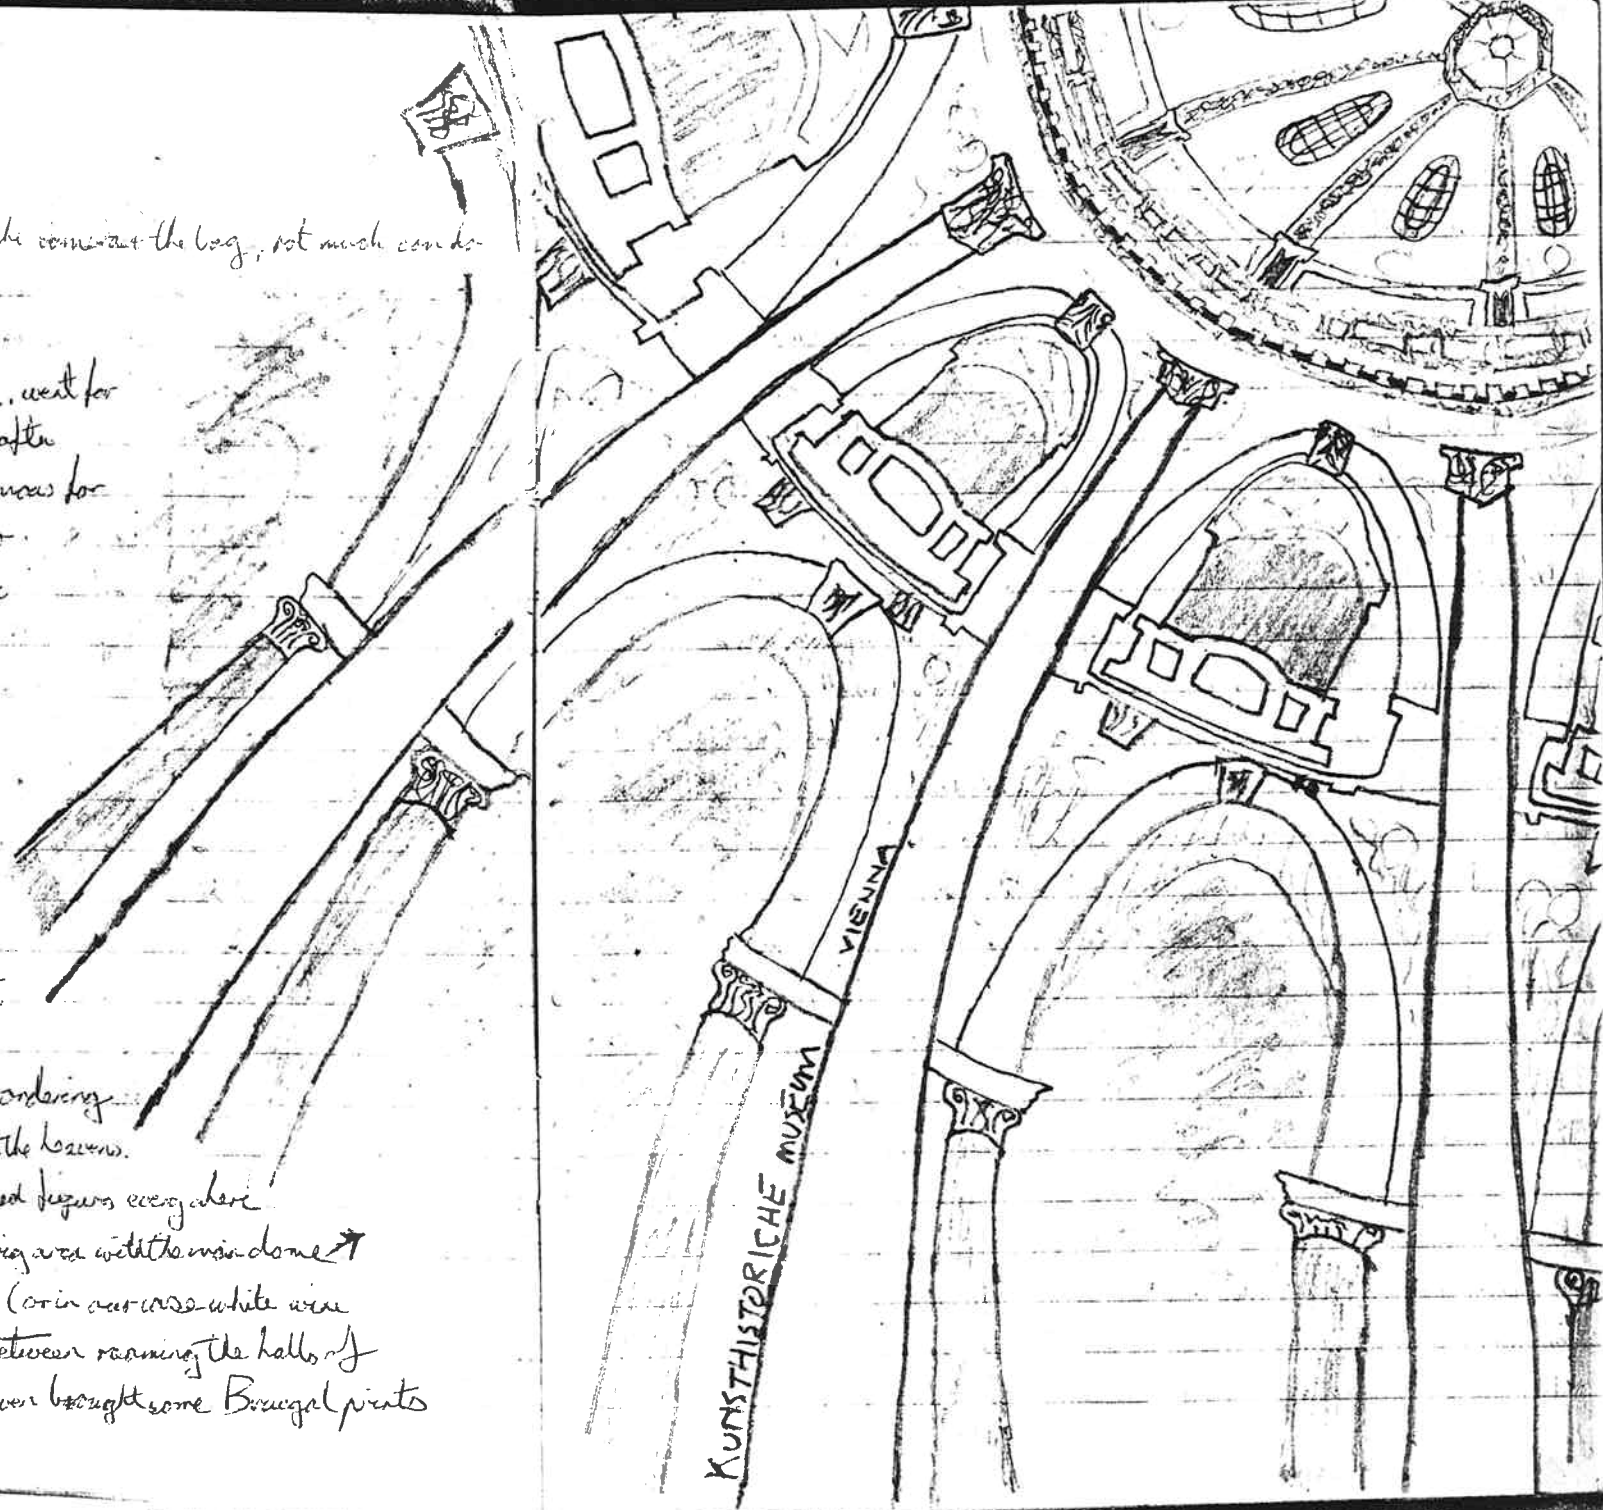 the bag, not much can do
, went for
after
for
ondering
the
figures everywhere
area with the main dome
(or in our case white wine
etween roaming the halls of
ven brought some Bruegal prints
VIENNA
KUNSTHISTORICHE MUSEUM